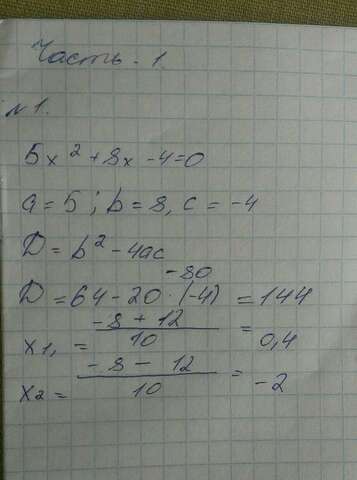 Часть. 1.
№1.
5x² + 8x - 4 = 0
a = 5; b = 8, c = -4
D = b² - 4ac
-80
D = 64 - 20 · (-4) = 144
x1, = (-8 + 12)/10 = 0,4
x2 = (-8 - 12)/10 = -2